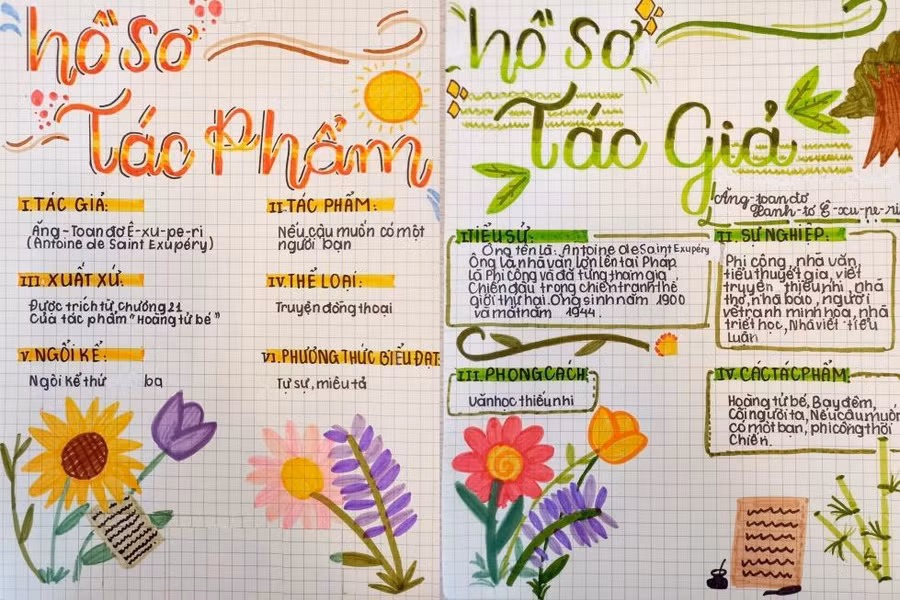 hồ sơ
Tác Phẩm
I.TÁC GIẢ:
Ăng-Toan đơ Ê-xu-pe-ri
(Antoine de Saint Exupéry)
II TÁC PHẨM:
Nếu cậu muốn có một
người bạn
III XUẤT XỨ:
Được trích từ Chương 21
Của tác phẩm "Hoàng tử bé"
IV.THỂ LOẠI:
Truyện đồng thoại
V.NGÔI KỂ:
Ngôi kể thứ ba
VI.PHƯƠNG THỨC BIỂU ĐẠT:
Tự sự, miêu tả
hồ sơ
Tác Giả
Ăng-toan đơ
Xanh-tơ Ê-xu-pe-ri
I TIỂU SỬ:
Ông tên là: Antoine de Saint Exupéry
Ông là nhà văn lớn lên tại Pháp
là Phi Công và đã từng tham gia
Chiến đấu trong chiến tranh thế
giới thứ hai. Ông sinh năm 1900
và mất năm 1944.
II. SỰ NGHIỆP:
Phi công, nhà văn,
tiểu thuyết gia, viết
truyện thiếu nhi, nhà
thơ, nhà báo, người
vẽ tranh minh họa, nhà
triết học, Nhà viết tiểu
luân
III.PHONG CÁCH:
văn học thiếu nhi
IV.CÁC TÁC PHẨM:
Hoàng tử bé, Bay đêm,
Cõi người ta, Nếu cậu muốn
có một bạn, phi công thời
Chiến.